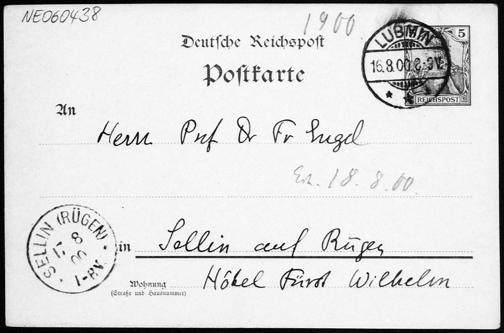 NE060438
1900
Deutsche Reichspost
Postkarte
LUBMIN
16.8.00.8-9V.
5
REICHSPOST
An
Herrn Prof Dr Fr Engel
18.8.00.
SELLIN (RÜGEN)
17
8
00
1-8V.
in Sellin auf Rügen
Wohnung
(Straße und Hausnummer)
Hôtel Fürst Wilhelm